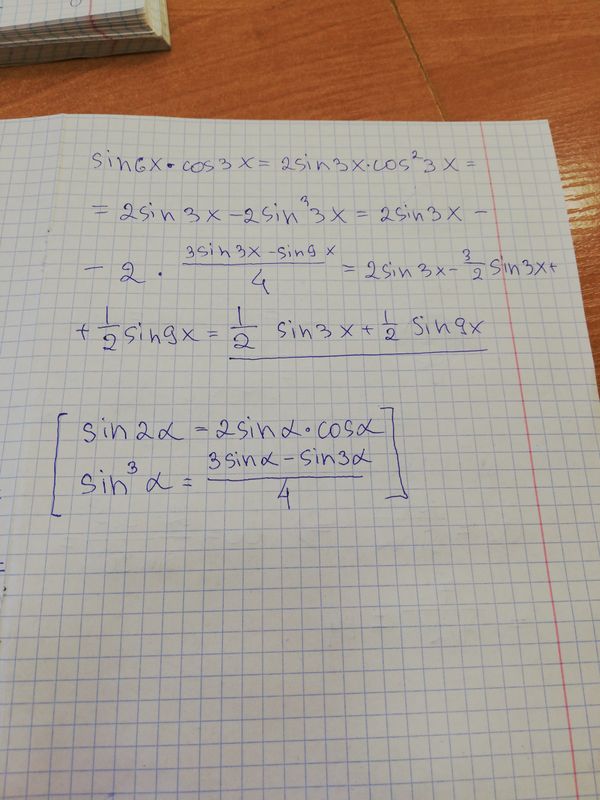 sin6x·cos3x = 2sin3x·cos²3x =
= 2sin3x − 2sin³3x = 2sin3x −
− 2 · (3sin3x − sin9x)/4 = 2sin3x − 3/2 sin3x +
+ 1/2 sin9x = 1/2 sin3x + 1/2 sin9x
[ sin2α = 2sinα·cosα ]
[ sin³α = (3sinα − sin3α)/4 ]